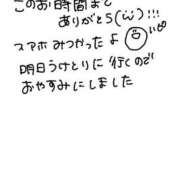 このお時間まで
ありがと5(ω)!!!
スマホみつかったよ
明日うけとりに行くので
おやすみにしました